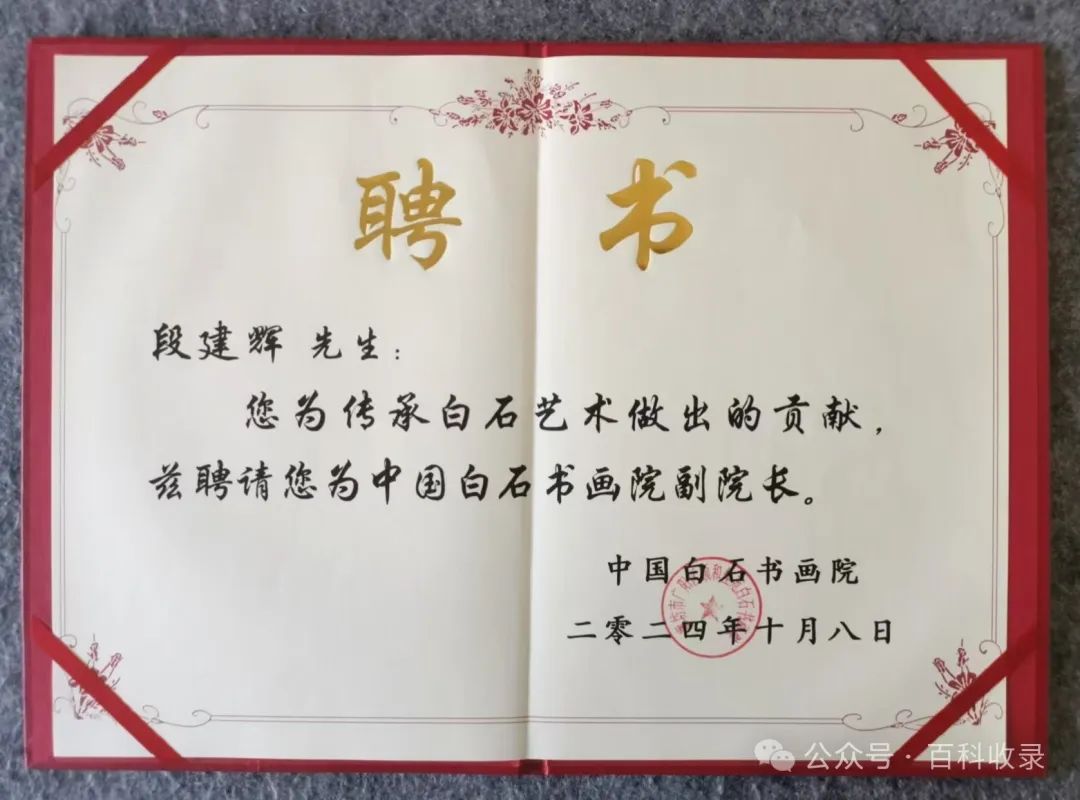 聘书
段建辉 先生：
您为传承白石艺术做出的贡献，
兹聘请您为中国白石书画院副院长。
中国白石书画院
二零二四年十月八日
公众号·百科收录